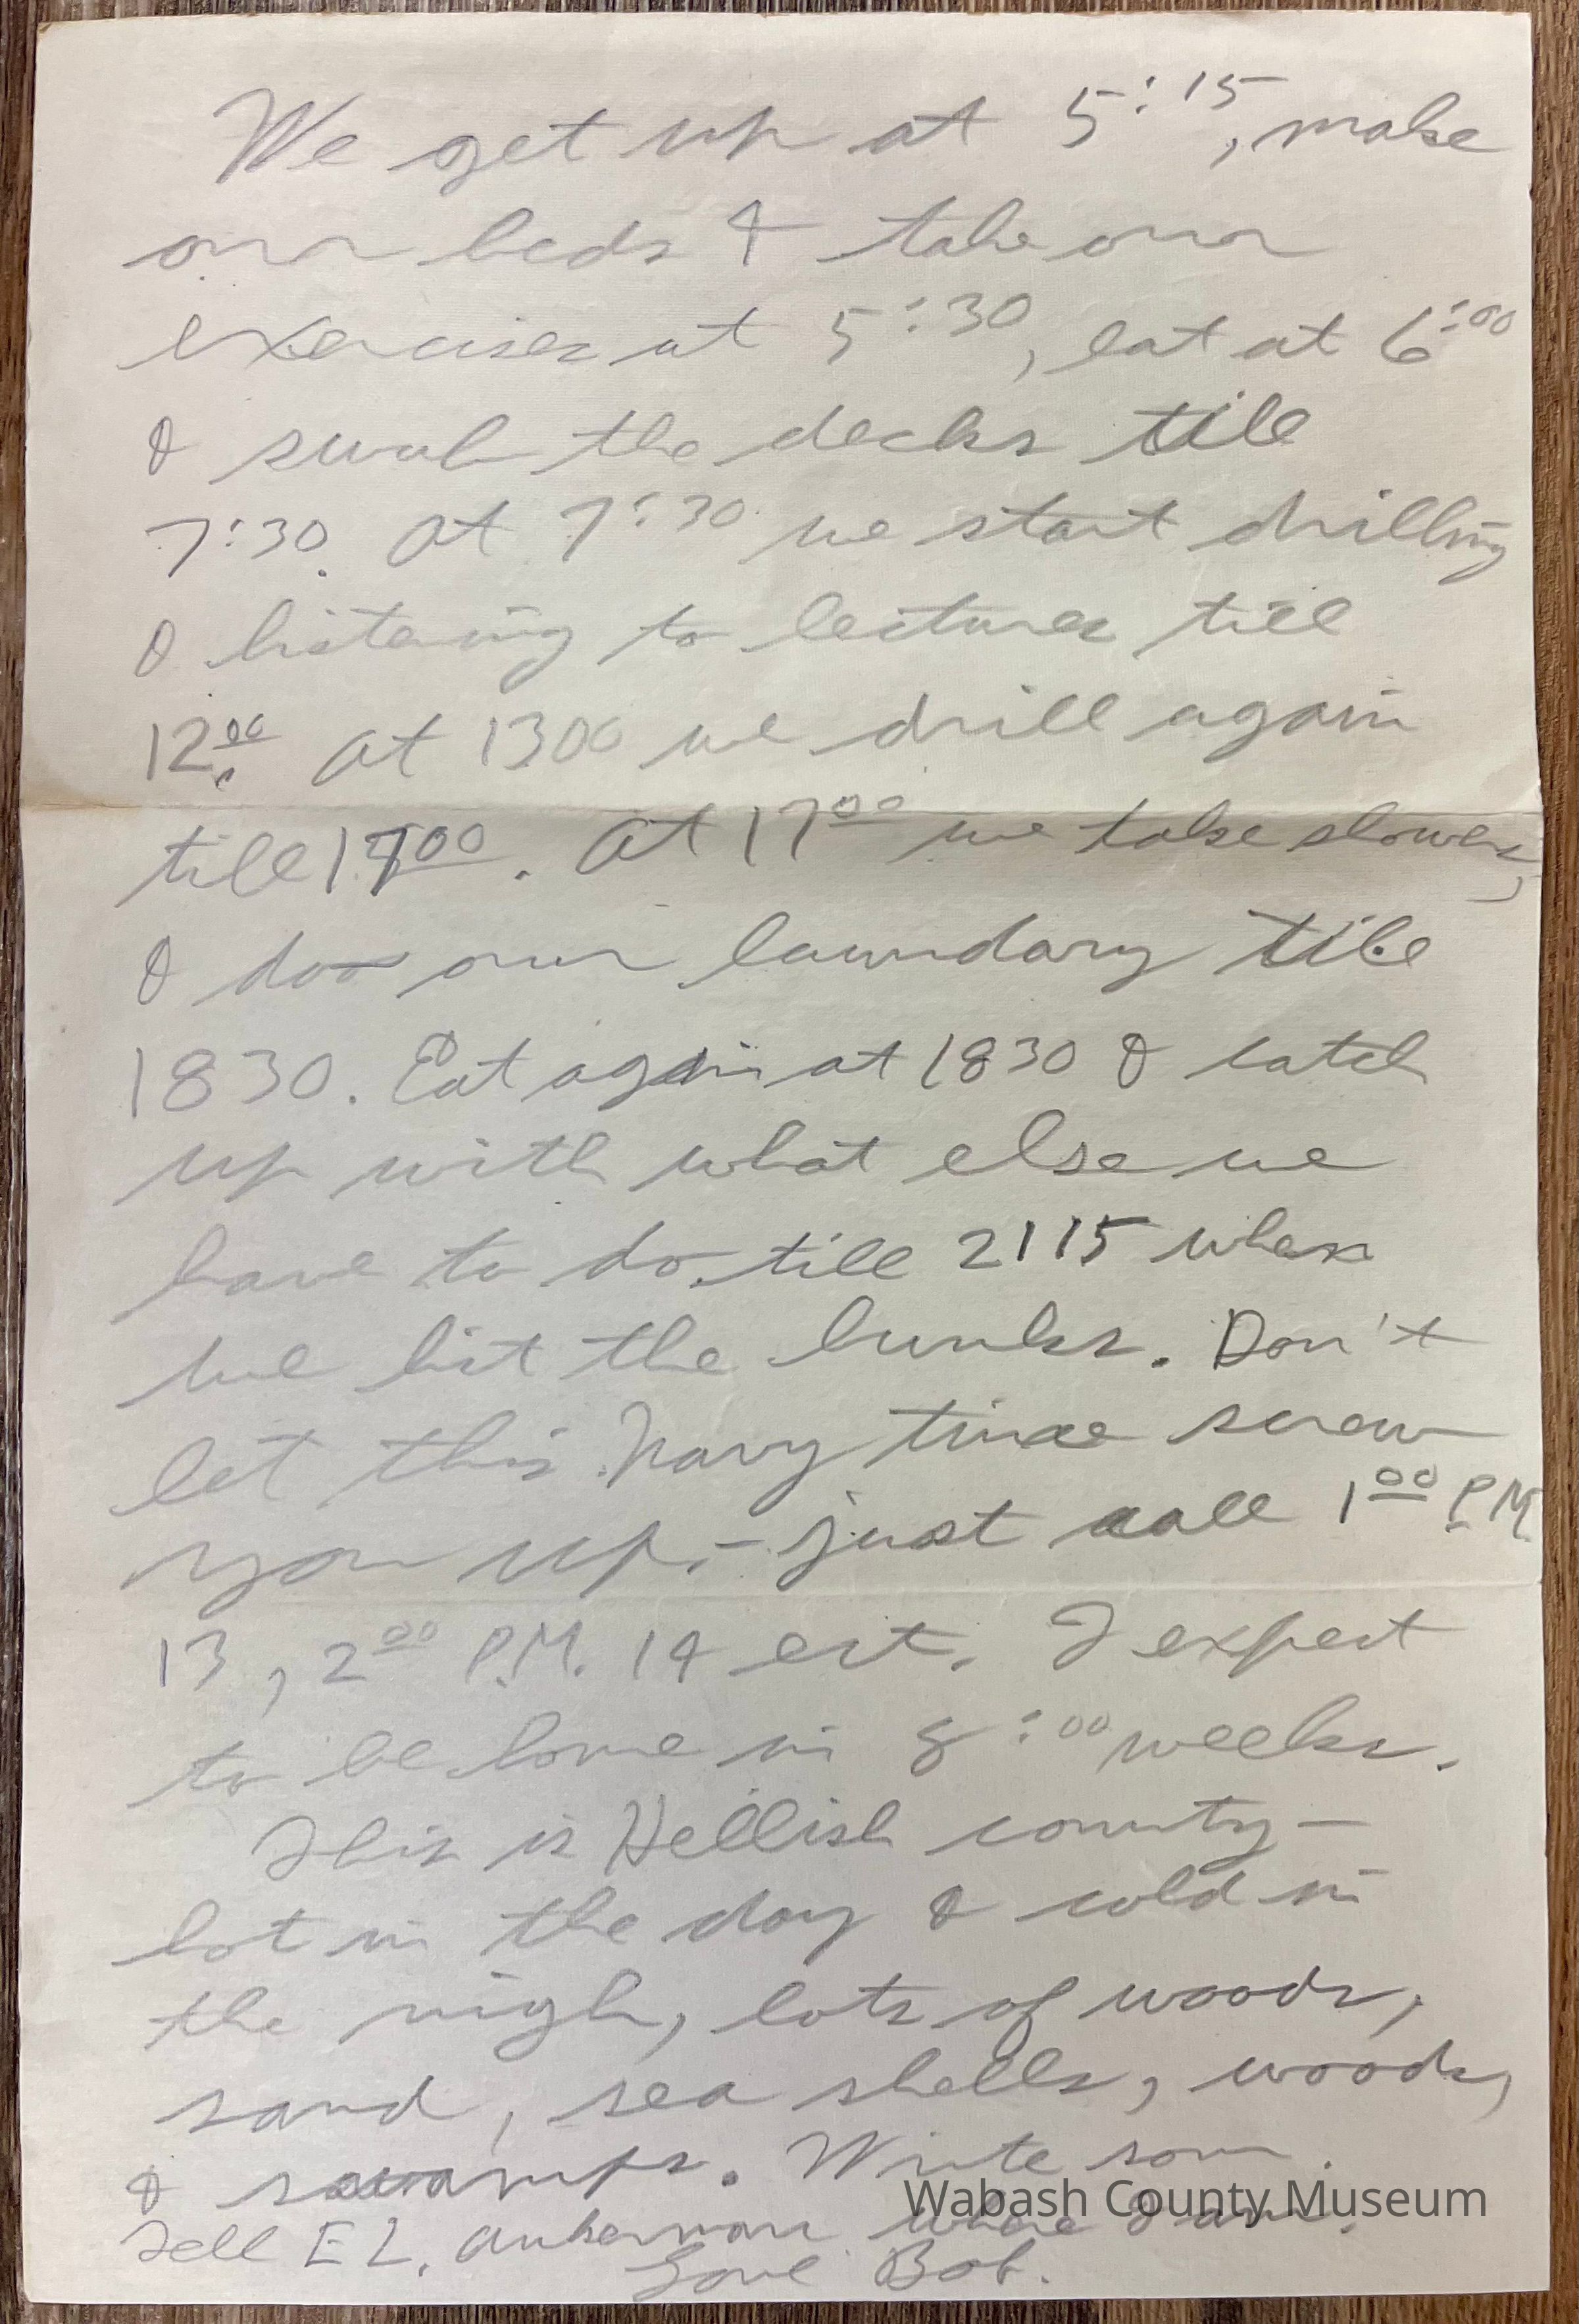 We get up at 5:15, make
our beds & take our
exercises at 5:30, eat at 6:00
& swab the decks till
7:30. At 7:30 we start drilling
& listening to lectures till
12:00. At 1300 we drill again
till 1700. At 1700 we take showers,
& do our laundary till
1830. Eat again at 1830 & catch
up with what else we
have to do, till 2115 when
we hit the bunks. Don't
let this Navy time screw
you up, - just call 1:00 P.M.
13, 2:00 P.M. 14 ect. I expect
to be home in 8:00 weeks.
This is Hellish county -
hot in the day & cold in
the nigh, lots of woods,
sand, sea shells, woods,
& swamps. Write soon.
Tell E L. Ankerman where I am.
Love Bob.
Wabash County Museum